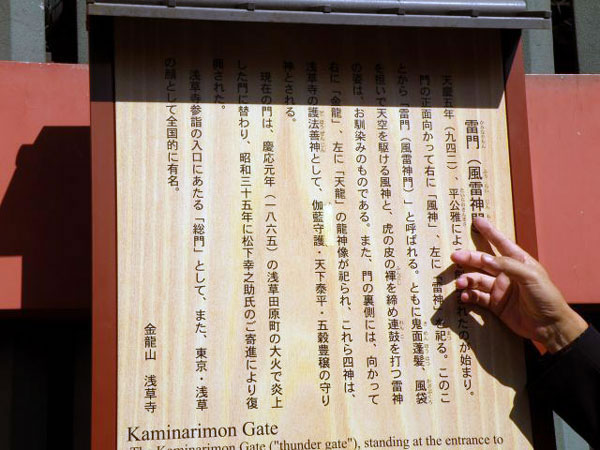 雷門（風雷神門
天慶五年（九四二）、平公雅によ　れたのが始まり。
門の正面向かって右に「風神」、左に「雷神」を祀る。このこ
とから「雷門（風雷神門）」と呼ばれる。ともに鬼面蓬髪、風袋
を担いで天空を駆ける風神と、虎の皮の褌を締め連鼓を打つ雷神
の姿は、お馴染みのものである。また、門の裏側には、向かって
右に「金龍」、左に「天龍」の龍神像が祀られ、これら四神は、
浅草寺の護法善神として、伽藍守護・天下泰平・五穀豊穣の守り
神とされる。
現在の門は、慶応元年（一八六五）の浅草田原町の大火で炎上
した門に替わり、昭和三十五年に松下幸之助氏のご寄進により復
興された。
浅草寺参詣の入口にあたる「総門」として、また、東京・浅草
の顔として全国的に有名。
金龍山　浅草寺
Kaminarimon Gate
The Kaminarimon Gate ("thunder gate"), standing at the entrance to